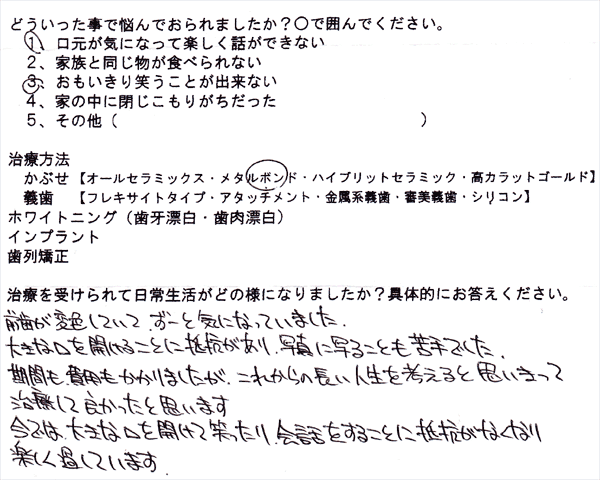 どういった事で悩んでおられましたか?〇で囲んでください。
1、口元が気になって楽しく話ができない
2、家族と同じ物が食べられない
3、おもいきり笑うことが出来ない
4、家の中に閉じこもりがちだった
5、その他( )
治療方法
かぶせ【オールセラミックス・メタルボンド・ハイブリットセラミック・高カラットゴールド】
義歯 【フレキサイトタイプ・アタッチメント・金属系義歯・審美義歯・シリコン】
ホワイトニング(歯牙漂白・歯肉漂白)
インプラント
歯列矯正
治療を受けられて日常生活がどの様になりましたか?具体的にお答えください。
前歯が変色していて、ずーと気になっていました。
大きな口を開けることに抵抗があり、写真に写ることも苦手でした。
期間も費用もかかりましたが、これからの長い人生を考えると思いきって
治療して良かったと思います
今では、大きな口を開けて笑ったり、会話をすることに抵抗がなくなり
楽しく過しています。